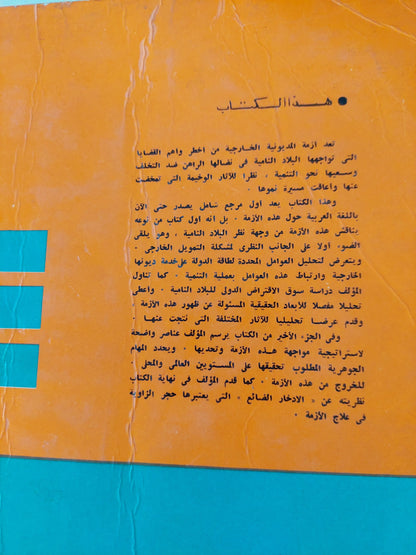 ● هذا الكتاب
تعد أزمة المديونية الخارجية من أخطر وأهم القضايا
التى تواجهها البلاد النامية فى نضالها الراهن ضد التخلف
وسعيها نحو التنمية ، نظرا للآثار الوخيمة التى تمخضت
عنها وأعاقت مسيرة نموها ·
وهذا الكتاب يعد أول مرجع شامل يصدر حتى الآن
باللغة العربية حول هذه الأزمة · بل انه أول كتاب من نوعه
يناقش هذه الأزمة من وجهة نظر البلاد النامية ، وهو يلقى
الضوء أولا على الجانب النظرى لمشكلة التمويل الخارجى ·
ويتعرض لتحليل العوامل المحددة لطاقة الدولة على خدمة ديونها
الخارجية وارتباط هذه العوامل بعملية التنمية · كما تناول
المؤلف دراسة سوق الاقتراض الدولى للبلاد النامية · وأعطى
تحليلا مفصلا للأبعاد الحقيقية المسئولة عن ظهور هذه الأزمة ·
وقدم عرضا تحليليا للآثار المختلفة التى نتجت عنها ·
وفى الجزء الأخير من الكتاب يرسم المؤلف عناصر واضحة
لاستراتيجية مواجهة هذه الأزمة وتحديها · ويحدد المهام
الجوهرية المطلوب تحقيقها على المستويين العالمى والمحلى
للخروج من هذه الأزمة · كما قدم المؤلف فى نهاية الكتاب
نظريته عن « الادخار الضائع » التى يعتبرها حجر الزاوية
فى علاج الأزمة ·